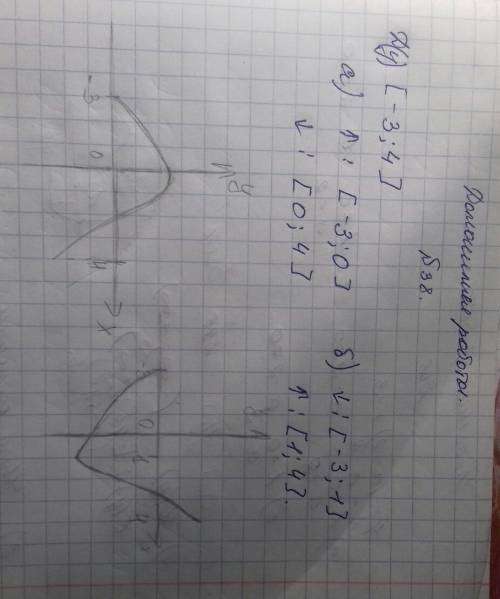 Домашняя работа.
№38.
D(y) [-3; 4]
а) ↑: [-3; 0]
↓: [0; 4]
б) ↓: [-3; 1]
↑: [1; 4].
y
-3 0 4 x
y
-3 0 1 4 x